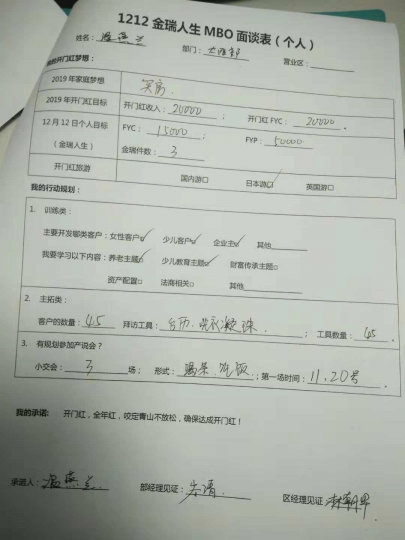 1212 金瑞人生 MBO 面谈表（个人）
姓名： 部门： 营业区：
我的开门红梦想：
2019 年家庭梦想 买房
2019 年开门红目标 开门红收入：20000 ； 开门红 FYC： 20000 。
12 月 12 日个人目标（金瑞人生） FYC： 15000 ； FYP： 50000
金瑞件数： 3
开门红旅游 国内游□ 日本游☑ 英国游□
我的行动规划：
1. 训练类：
主要开发哪类客户：女性客户☑ 少儿客户☑ 企业主☑ 其他
我要学习以下内容：养老主题☑ 少儿教育主题☑ 财富传承主题□
资产配置□ 法商相关□ 其他
2. 主拓类：
客户的数量： 45 拜访工具：台历、洗衣凝珠 ； 工具数量： 45 。
3. 有规划参加产说会？
小交会： 3 场； 形式： 吃饭 ；第一场时间： 11.20号 。
我的承诺： 开门红，全年红，咬定青山不放松，确保达成开门红！
承诺人： 部经理见证： 朱清 区经理见证：